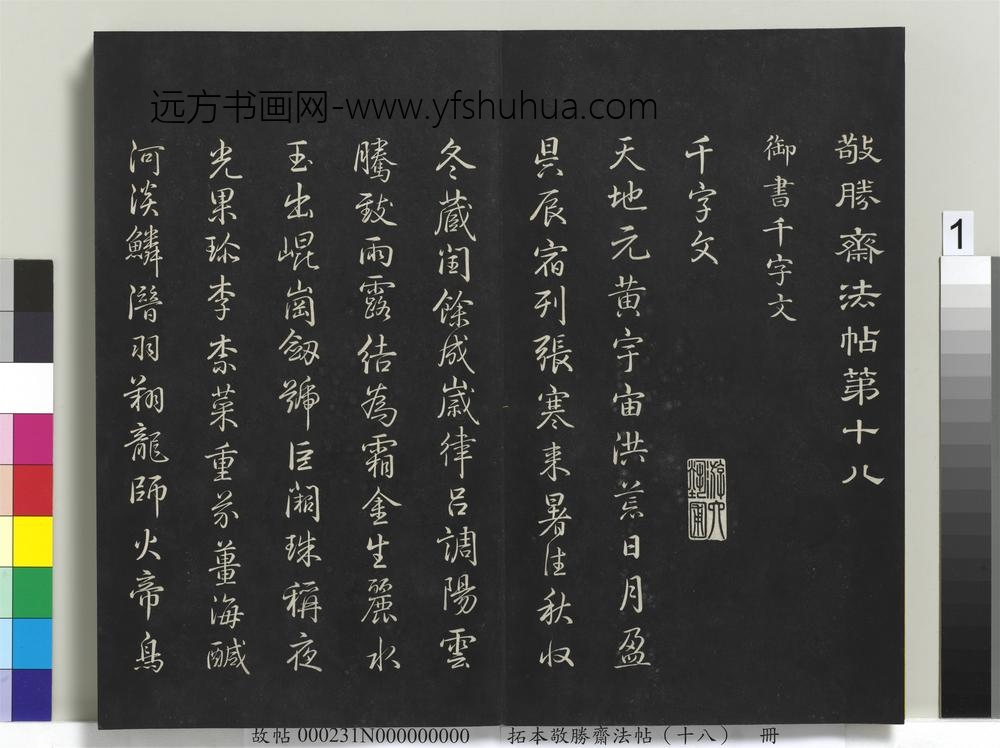 远方书画网-www.yfshuhua.com
敬勝齋法帖第十八
御書千字文
千字文
天地元黃宇宙洪荒日月盈
昃辰宿列張寒来暑往秋收
冬藏閏餘成歲律呂調陽雲
騰致雨露結為霜金生麗水
玉出崐岡劔號巨闕珠稱夜
光果珍李柰菜重芥薑海鹹
河淡鱗潛羽翔龍師火帝鳥
1
故帖 000231N000000000 拓本敬勝齋法帖（十八） 冊